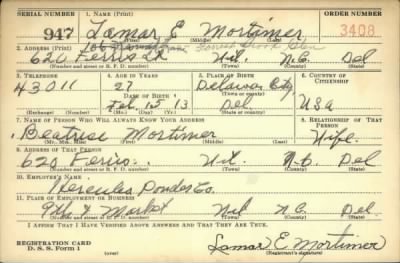 SERIAL NUMBER 1. NAME (Print) ORDER NUMBER
947 Lamar E Mortimer 3408
(First) (Middle) (Last)
2. ADDRESS (Print)
620 Ferris Wil. N.C. Del
(Number and street or R. F. D. number) (Town) (County) (State)
3. TELEPHONE 4. AGE IN YEARS 5. PLACE OF BIRTH 6. COUNTRY OF CITIZENSHIP
43011 27 Delaware City USA
DATE OF BIRTH (Town or county)
Feb. 15 13 Del.
(Exchange) (Number) (Mo.) (Day) (Yr.) (State or country)
7. NAME OF PERSON WHO WILL ALWAYS KNOW YOUR ADDRESS 8. RELATIONSHIP OF THAT PERSON
Beatrice Mortimer Wife
(Mr., Mrs., Miss) (First) (Middle) (Last)
9. ADDRESS OF THAT PERSON
620 Ferris Wil. N.C. Del
(Number and street or R. F. D. number) (Town) (County) (State)
10. EMPLOYER'S NAME
Hercules Powder Co.
11. PLACE OF EMPLOYMENT OR BUSINESS
9th & Market Wil N.C. Del
(Number and street or R. F. D. number) (Town) (County) (State)
I AFFIRM THAT I HAVE VERIFIED ABOVE ANSWERS AND THAT THEY ARE TRUE.
REGISTRATION CARD
D. S. S. Form 1 Lamar E Mortimer
(Registrant's signature)